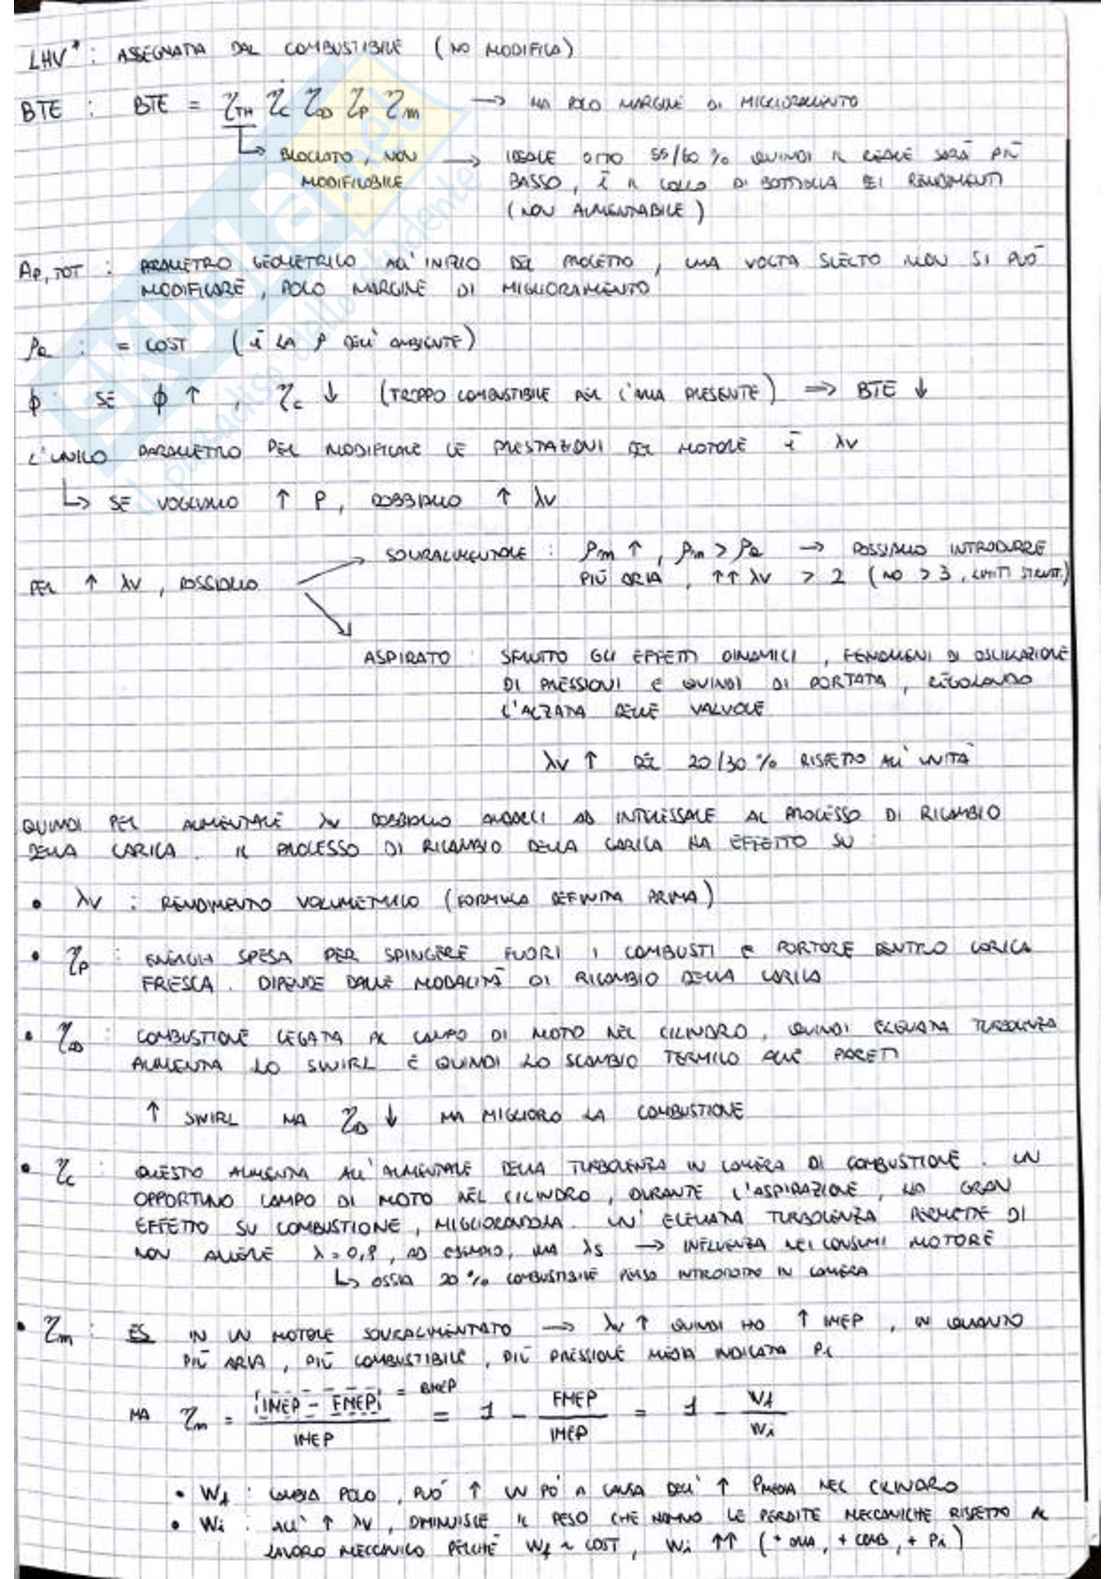 LHV* : ASSEGNATA DAL COMBUSTIBILE (NO MODIFICA)
BTE : BTE = η_TH η_c η_θ η_p η_m → HA POCO MARGINE DI MIGLIORAMENTO
↳ BLOCCATO, NON → IDEALE OTTO 55/60 % QUINDI IL REALE SARÀ PIÙ
MODIFICABILE BASSO, È IL COLLO DI BOTTIGLIA DEI RENDIMENTI
(NON AUMENTABILE)
A_P,TOT : PARAMETRO GEOMETRICO ALL'INIZIO DEL PROGETTO, UNA VOLTA SCELTO NON SI PUÒ
MODIFICARE, POCO MARGINE DI MIGLIORAMENTO
ρ_a : = COST (È LA ρ DELL'AMBIENTE)
ϕ : SE ϕ ↑, η_c ↓ (TROPPO COMBUSTIBILE PER L'ARIA PRESENTE) ⇒ BTE ↓
L'UNICO PARAMETRO PER MODIFICARE LE PRESTAZIONI DEL MOTORE È λv
↳ SE VOGLIAMO ↑ P, DOBBIAMO ↑ λv
PER ↑ λv, POSSIAMO
SOVRALIMENTARE : ρm ↑, ρm > ρa → POSSIAMO INTRODURRE
PIÙ ARIA, ↑↑ λv > 2 (NO > 3, LIMITI STRUTT.)
ASPIRATO : SFRUTTO GLI EFFETTI DINAMICI, FENOMENI DI OSCILLAZIONE
DI PRESSIONI E QUINDI DI PORTATA, REGOLANDO
L'ALZATA DELLE VALVOLE
λv ↑ DEL 20/30 % RISPETTO ALL'UNITÀ
QUINDI PER AUMENTARE λv DOBBIAMO ANDARCI AD INTERESSARE AL PROCESSO DI RICAMBIO
DELLA CARICA. IL PROCESSO DI RICAMBIO DELLA CARICA HA EFFETTO SU :
• λv : RENDIMENTO VOLUMETRICO (FORMULA DEFINITA PRIMA)
• η_p : ENERGIA SPESA PER SPINGERE FUORI I COMBUSTI E PORTARE DENTRO CARICA
FRESCA. DIPENDE DALLE MODALITÀ DI RICAMBIO DELLA CARICA
• η_θ : COMBUSTIONE LEGATA AL CAMPO DI MOTO NEL CILINDRO, QUINDI ELEVATA TURBOLENZA
AUMENTA LO SWIRL E QUINDI LO SCAMBIO TERMICO ALLE PARETI
↑ SWIRL MA η_θ ↓ MA MIGLIORO LA COMBUSTIONE
• η_c : QUESTO AUMENTA ALL'AUMENTARE DELLA TURBOLENZA IN CAMERA DI COMBUSTIONE. UN
OPPORTUNO CAMPO DI MOTO NEL CILINDRO, DURANTE L'ASPIRAZIONE, HA GRAN
EFFETTO SU COMBUSTIONE, MIGLIORANDOLA. UN'ELEVATA TURBOLENZA PERMETTE DI
NON AVERE λ = 0,8, AD ESEMPIO, MA λs → INFLUENZA NEI CONSUMI MOTORE
↳ OSSIA 20 % COMBUSTIBILE PERSO INTRODOTTO IN CAMERA
• η_m : ES IN UN MOTORE SOVRALIMENTATO → λv ↑ QUINDI HO ↑ IMEP, IN QUANTO
PIÙ ARIA, PIÙ COMBUSTIBILE, PIÙ PRESSIONE MEDIA INDICATA Pi
MA η_m = (IMEP - FMEP) = BMEP / IMEP = 1 - FMEP / IMEP = 1 - Wf / Wi
• Wf : CAMBIA POCO, PUÒ ↑ UN PÒ A CAUSA DELL'↑ PMEDIA NEL CILINDRO
• Wi : ALL'↑ λv, DIMINUISCE IL PESO CHE HANNO LE PERDITE MECCANICHE RISPETTO AL
LAVORO MECCANICO PERCHÈ Wf ~ COST, Wi ↑↑ (+ ARIA, + COMB, + Pi)